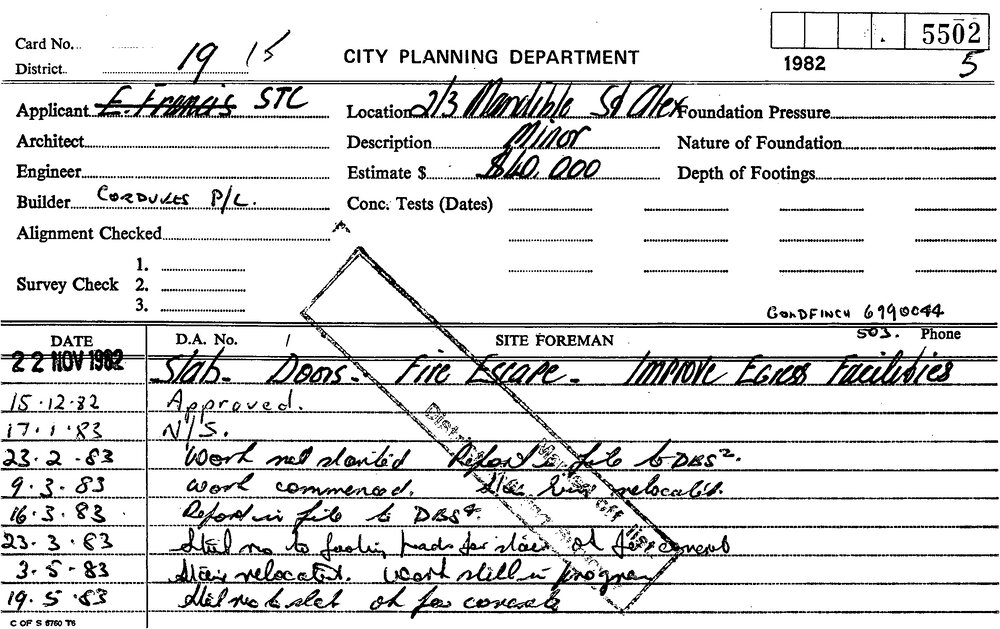 5502
Card No.
District 19 15
CITY PLANNING DEPARTMENT
1982 5
Applicant E. Francis STC
Location 2/3 Mandible St Alex
Foundation Pressure
Architect
Description Minor
Nature of Foundation
Engineer
Estimate $ $40,000
Depth of Footings
Builder CORDUKES P/L.
Conc. Tests (Dates)
Alignment Checked
Survey Check
1.
2.
3.
GOLDFINCH 6990044
503. Phone
DATE D.A. No. SITE FOREMAN
22 NOV 1982 Slab. Doors. Fire Escape. Improve Egress Facilities
15.12.82 Approved.
17.1.83 N/S.
23.2.83 Work not started Report in file to DBS².
9.3.83 Work commenced. relocated.
16.3.83 Report in file to DBS
23.3.83 Steel to footing pads for stair ok for concrete
3.5.83 Stair relocated. Work still in progress
19.5.83 Steel to slab ok for concrete
Marked off list
District
C OF S 6760 T6